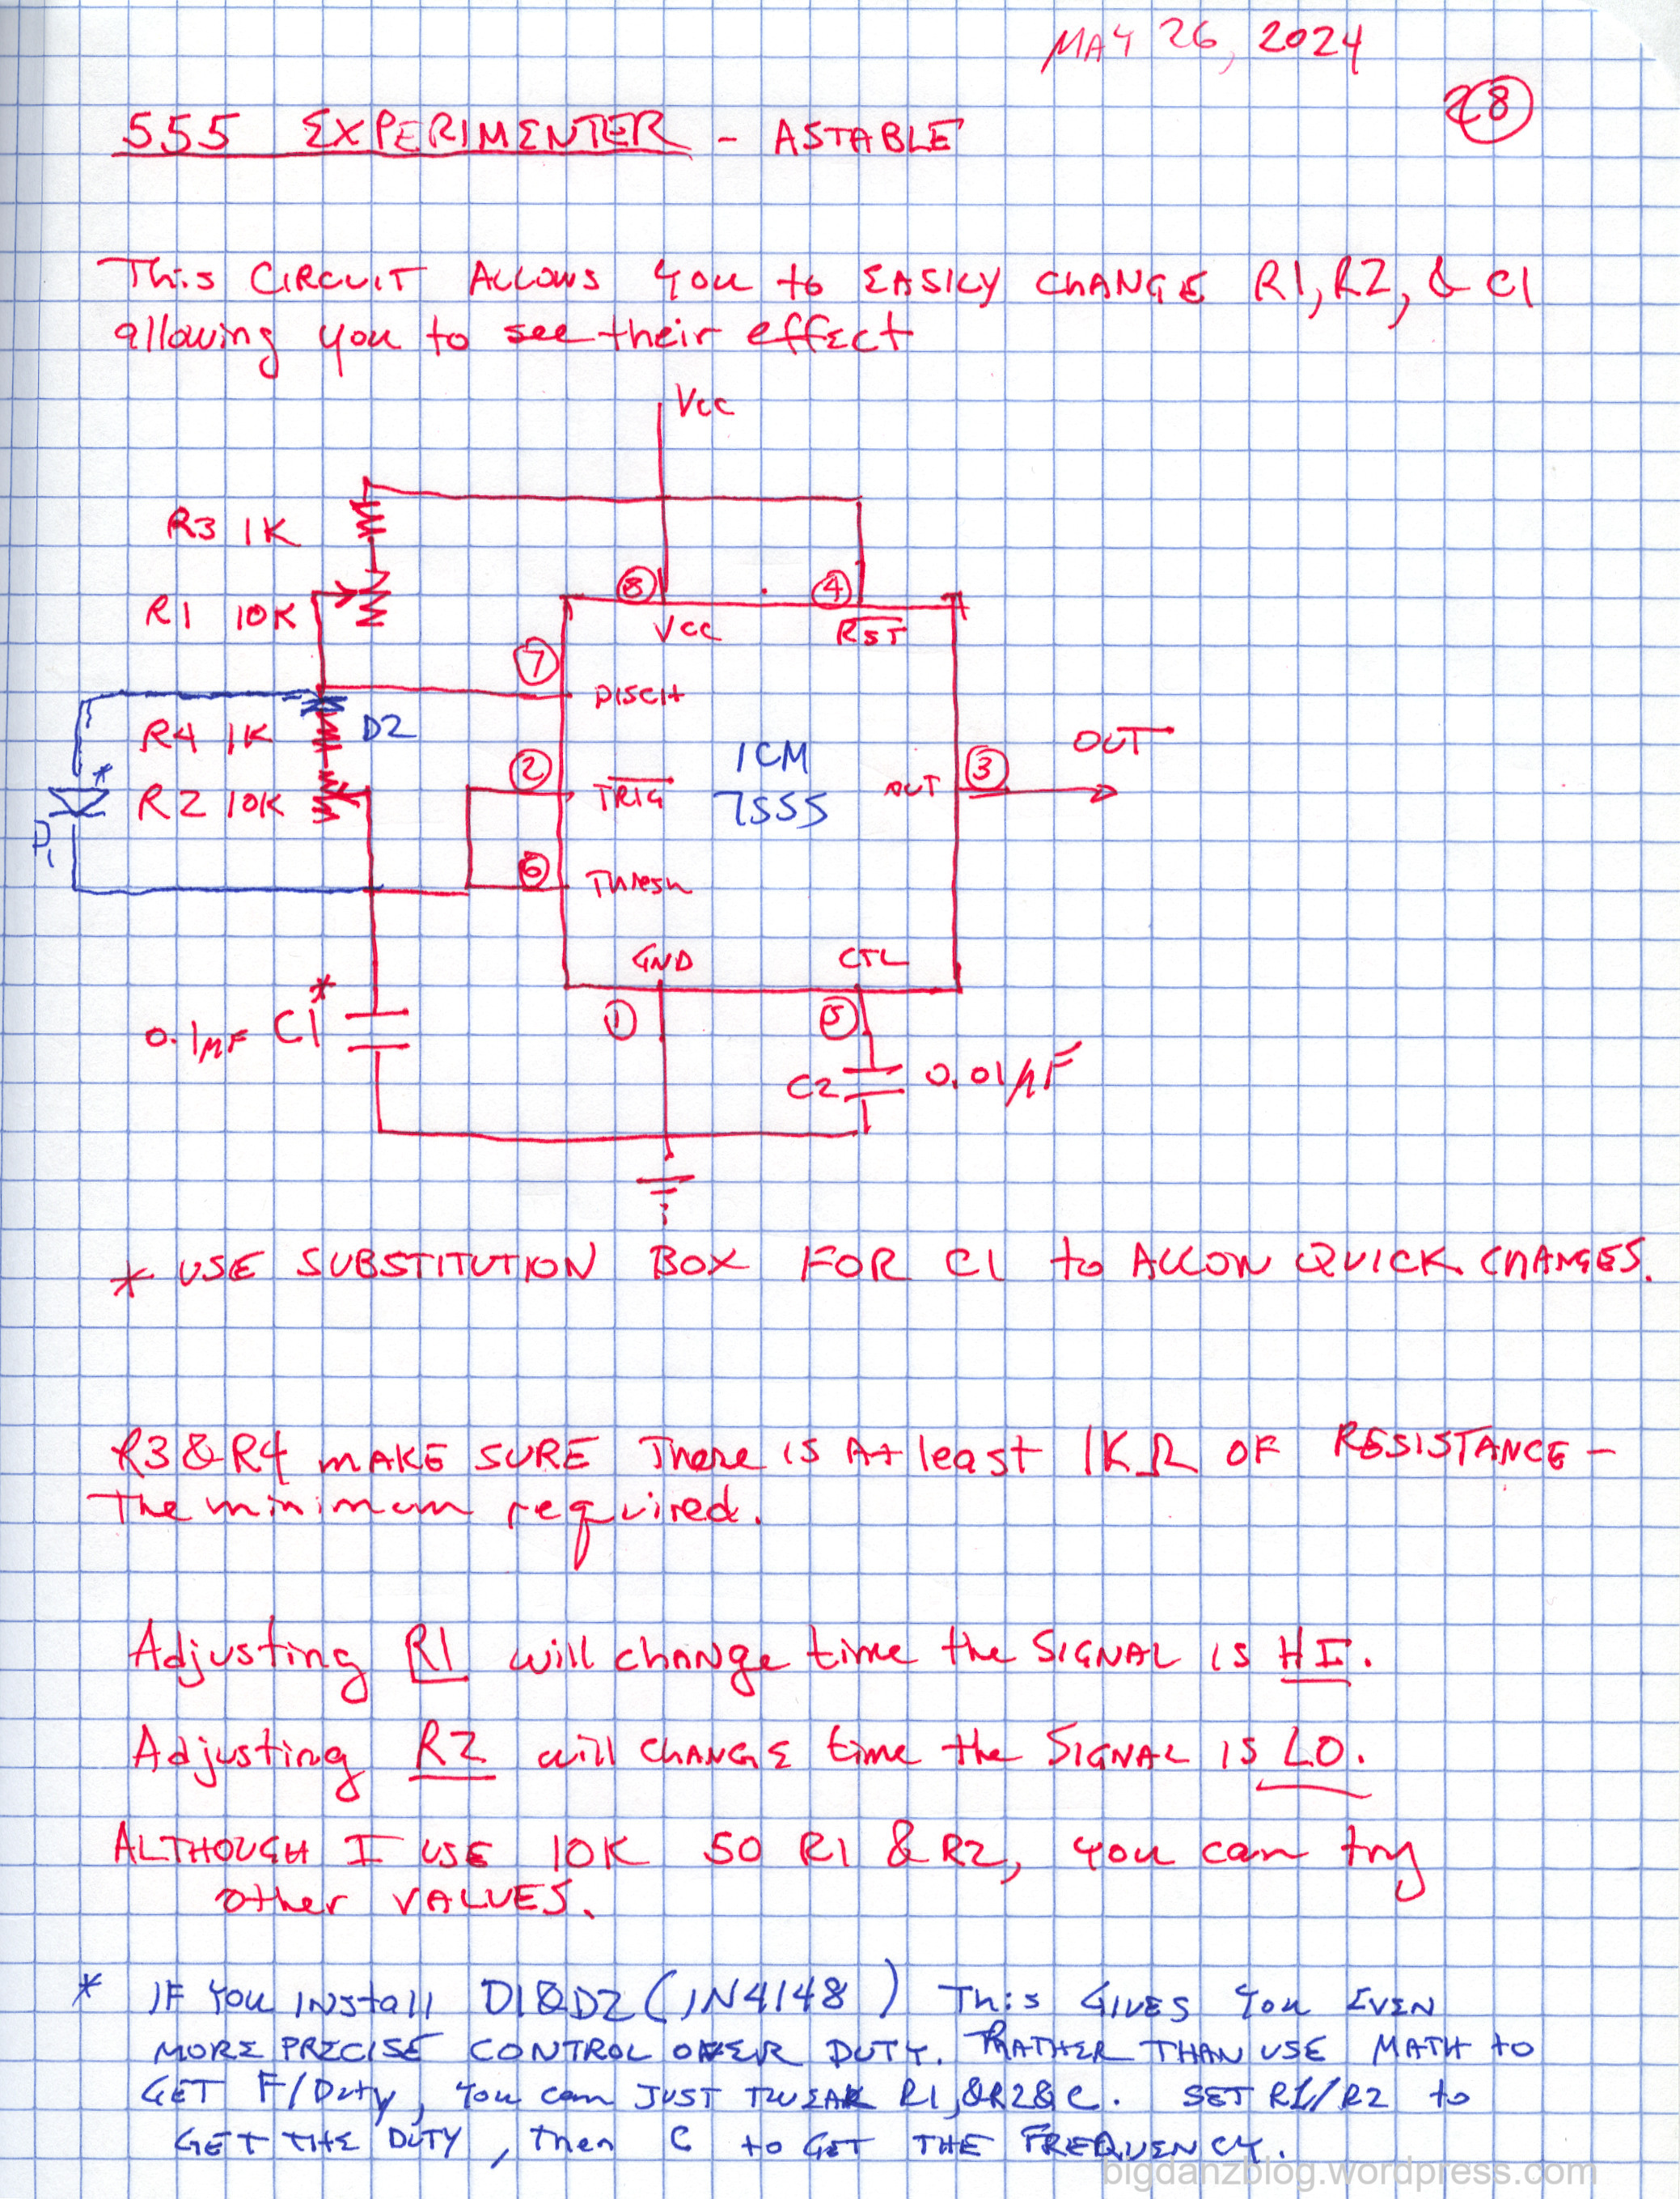 MAY 26, 2024
28
555 EXPERIMENTER - ASTABLE
This CIRCUIT ALLOWS you to EASILY CHANGE R1, R2, & C1
allowing you to see their effect
Vcc
R3 1K
R1 10K
8
4
VCC
RST
7
DISCH
R4 1K
D2
2
TRIG
ICM
7555
OUT
3
OUT
*
R2 10K
D1
6
Thresh
GND
CTL
*
0.1µF C1
1
5
C2
0.01µF
* USE SUBSTITUTION BOX FOR C1 to ALLOW QUICK CHANGES.
R3 & R4 MAKE SURE There is At least 1KΩ OF RESISTANCE -
The minimum required.
Adjusting R1 will change time the SIGNAL IS HI.
Adjusting R2 will CHANGE time the SIGNAL IS LO.
ALTHOUGH I USE 10K SO R1 & R2, you can try
other VALUES.
* IF YOU INStall D1&D2 (1N4148) This GIVES you EVEN
MORE PRECISE CONTROL OVER DUTY. RATHER THAN USE MATH to
GET F/Duty, you can JUST TWEAK R1,&R2&C. SET R1/R2 to
GET THE DUTY, then C to GET THE FREQUENCY.
bigdanzblog.wordpress.com